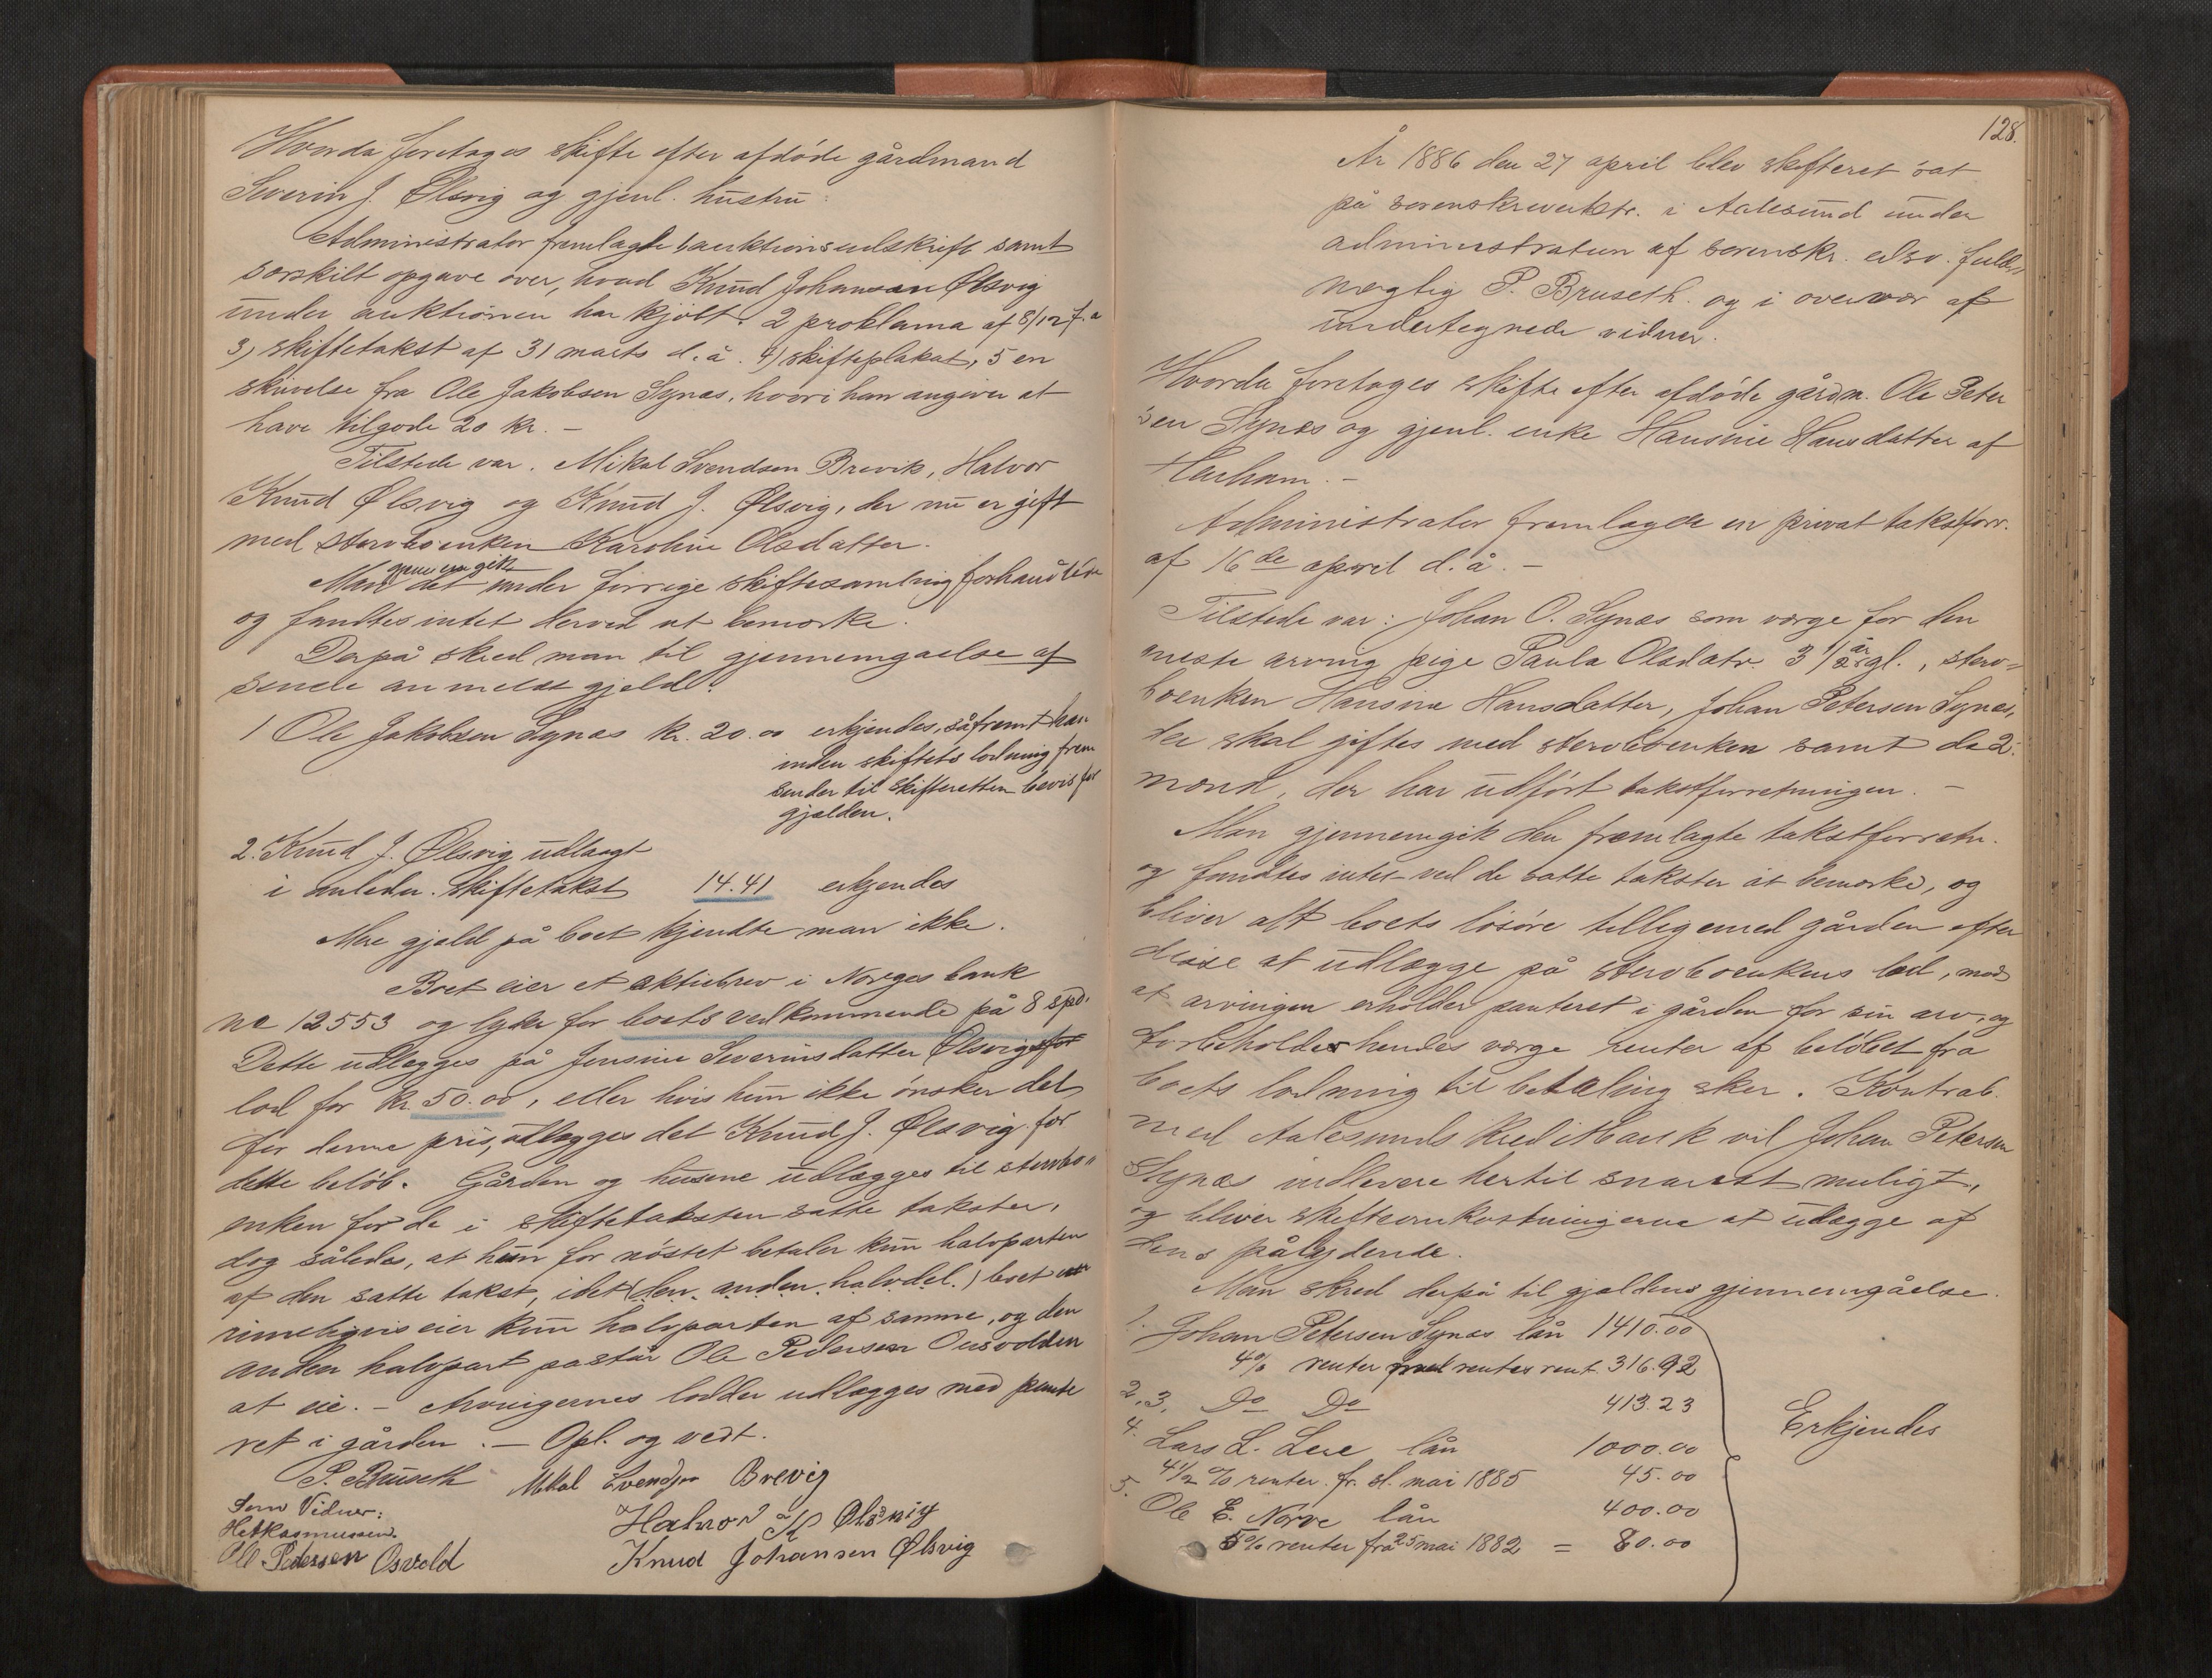 Hvorda foretages skifte efter afdøde gårdmand
Severin J. Ølsvig og gjenl. hustru.
Administrator fremlagde 1 auktionsudskrift samt
særskilt opgave over, hvad Knud Johansen Ølsvig
under auktionen har kjøbt. 2 proklama af 8/12 f. a
3) skiftetakst af 31 marts d. å. 4) skifteplakat, 5 en
skrivelse fra Ole Jakobsen Synæs, hvori han angiver at
have tilgode 20 kr. -
Tilstede var. Mikal Svendsen Brevik, Halvor
Knud Ølsvig og Knud J. Ølsvig, der nu er gift
med sterboenken Karoline Olsdatter.
Man gjennemgik det under forrige skiftesamling forhandlede
og fandtes intet derved at bemærke.
Derpå skred man til gjennemgaelse af
senere anmeldt gjeld.
1 Ole Jakobsen Synæs kr. 20.00 erkjendes, såfremt han
inden skiftets lodning frem
sender til skifteretten bevis for
gjælden.
2. Knud J. Ølsvig udlagt
i anledn. skiftetakst 14.41 erkjendes
Mere gjæld på boet kjendte man ikke.
Boet eier et aktiebrev i Norges bank
no 12553 og lyder for boets vedkommende på 8 spd.
Dette udlægges på Jensine Severinsdatter Ølsvigs for
lod for kr. 50.00, eller hvis hun ikke ønsker det
for denne pris, udlægges det Knud J. Ølsvig for
dette beløb. Gården og husene udlægges til sterbo"
enken for de i skiftetaksten satte takster,
dog således, at hun for nøstet betaler kun halvparten
af den satte takst, idet (den anden halvdel.) boet
rimeligvis eier kun halvparten af samme, og den
anden halvpart påstår Ole Pedersen Ousvolden
at eie. - Arvingernes lodder udlægges med pante
ret i gården. - Opl. og vedt.
P. Bruseth Mikal Svendsen Brevig
Som Vidner: Halvor K Ølsvig
H Rasmussen. Knud Johansen Ølsvig
Ole Pedersen Osvold
128.
År 1886 den 27 april blev skifteret sat
på sorenskriverktr. i Aalesund under
administration af sorenskr. edsv. fuld"
mægtig P. Bruseth. og i overvær af
undertegnede vidner.
Hvorda foretages skifte efter afdøde gårdm. Ole Peter
sen Synæs og gjenl. enke Hansine Hansdatter af
Harham. -
Administrator fremlagde en privat takstforr.
af 16de april d. å. -
Tilstede var: Johan O. Synæs som værge for den
eneste arving pige Paula Olsdatr. 3 1/2 år gl., sterv=
boenken Hansine Hansdatter, Johan Petersen Synæs,
der skal giftes med stervboenken samt de 2:
mænd, der har udført takstforretningen. -
Man gjennemgik den fremlagte takstforretn.
og fandtes intet ved de satte takster at bemærke, og
bliver alt boets løsøre tilligemed gården efter
disse at udlægge på stervboenkens lod, mod
at arvingen erholder panteret i gården for sin arv, og
forbeholder hendes værge renter af beløbet fra
boets lodning til betaling sker. Kontrab.
med Aalesunds Kreditbank vil Johan Petersen
Synæs indlevere hertil snarest muligt,
og bliver skifteomkostningerne at udlægge af
dens pålydende.
Man skred derpå til gjældens gjennemgåelse.
1. Johan Petersen Synæs lån 1410.00
4% renter med rentes rent. 316.92
2, 3, Do Do 413.23
4. Lars L. Leie lån 1000.00 Erkjendes
4 1/2 % renter. fr. sl. mai 1885 45.00
5. Ole E. Nørve lån 400.00
5% renter fra 25 mai 1882 = 80.00